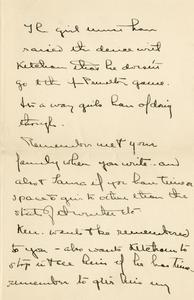 The girl must have
raised the dence with
Ketcham that he doesn't
go to the Penelton game.
It's a way girls have of doing
though.
Remember me to your
family when you write - and
also Laura if you have time a
space to give to other than the
state of
Ken. wants to be remembered
to you - also wants Ketcham to
stop in & see him if he has time.
remember to give him my